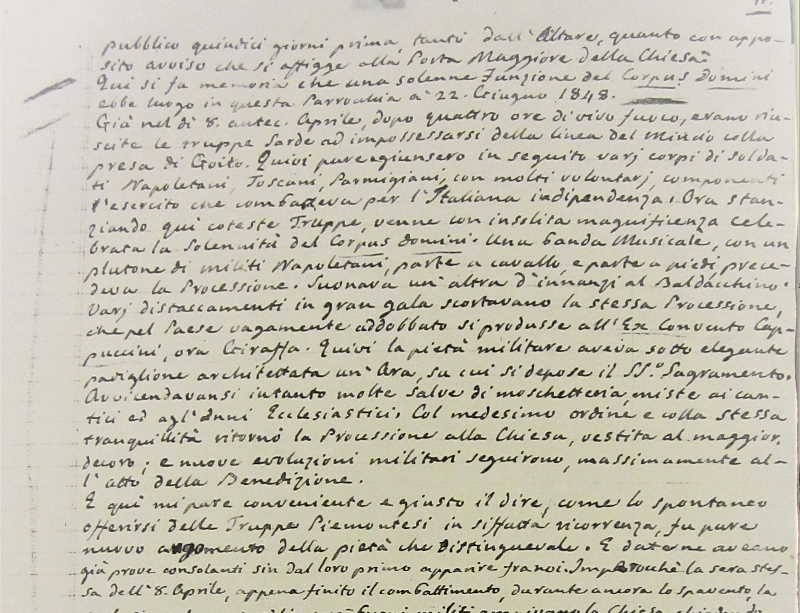 pubblico quindici giorni prima, tanto dall'Altare, quanto con appo-
sito avviso che si affigge alla Porta Maggiore della Chiesa.
Qui si fa memoria che una solenne Funzione del Corpus Domini
ebbe luogo in questa Parrochia a' 22. Giugno 1848.
Già nel dì 8. antec. Aprile, dopo quattro ore di vivo fuoco, erano riu-
scite le truppe Sarde ad impossessarsi della linea del Mincio colla
presa di Goito. Quivi, pure giunsero in seguito varj corpi di solda-
ti Napoletani, Toscani, Parmigiani, con molti volontarj, componenti
l'esercito che combatteva per l'Italiana indipendenza. Ora stan-
ziando qui coteste Truppe, venne con insolita magnificenza cele-
brata la Solennità del Corpus Domini. Una banda Musicale, con un
plutone di militi Napoletani, parte a cavallo, e parte a piedi, prece-
deva la Processione. Suonava un'altra d'innanzi al Baldacchino.
Varj distaccamenti in gran gala scortavano la stessa Processione,
che pel Paese vagamente addobbato si produsse all'Ex Convento Cap-
puccini, ora Giraffa. Quivi la pietà militare aveva sotto elegante
padiglione architettata un'Ara, su cui si depose il SS.o Sagramento.
Avvicendavansi intanto molte salve di moschetteria, miste ai can-
tici ed agl'Inni Ecclesiastici. Col medesimo ordine e colla stessa
tranquillità ritornò la Processione alla Chiesa, vestita al maggior
decoro; e nuove evoluzioni militari seguirono, massimamente al-
l'atto della Benedizione.
E quì mi pare conveniente e giusto il dire, come lo spontaneo
offerirsi delle Truppe Piemontesi in siffatta ricorrenza, fu pure
nuovo argomento della pietà che distinguevale. E date ne aveano
già prove consolanti sin dal loro primo apparire fra noi. Imperocchè la sera stes-
sa dell'8. Aprile, appena finito il combattimento, durante ancora lo spavento, la
militi la Chiesa